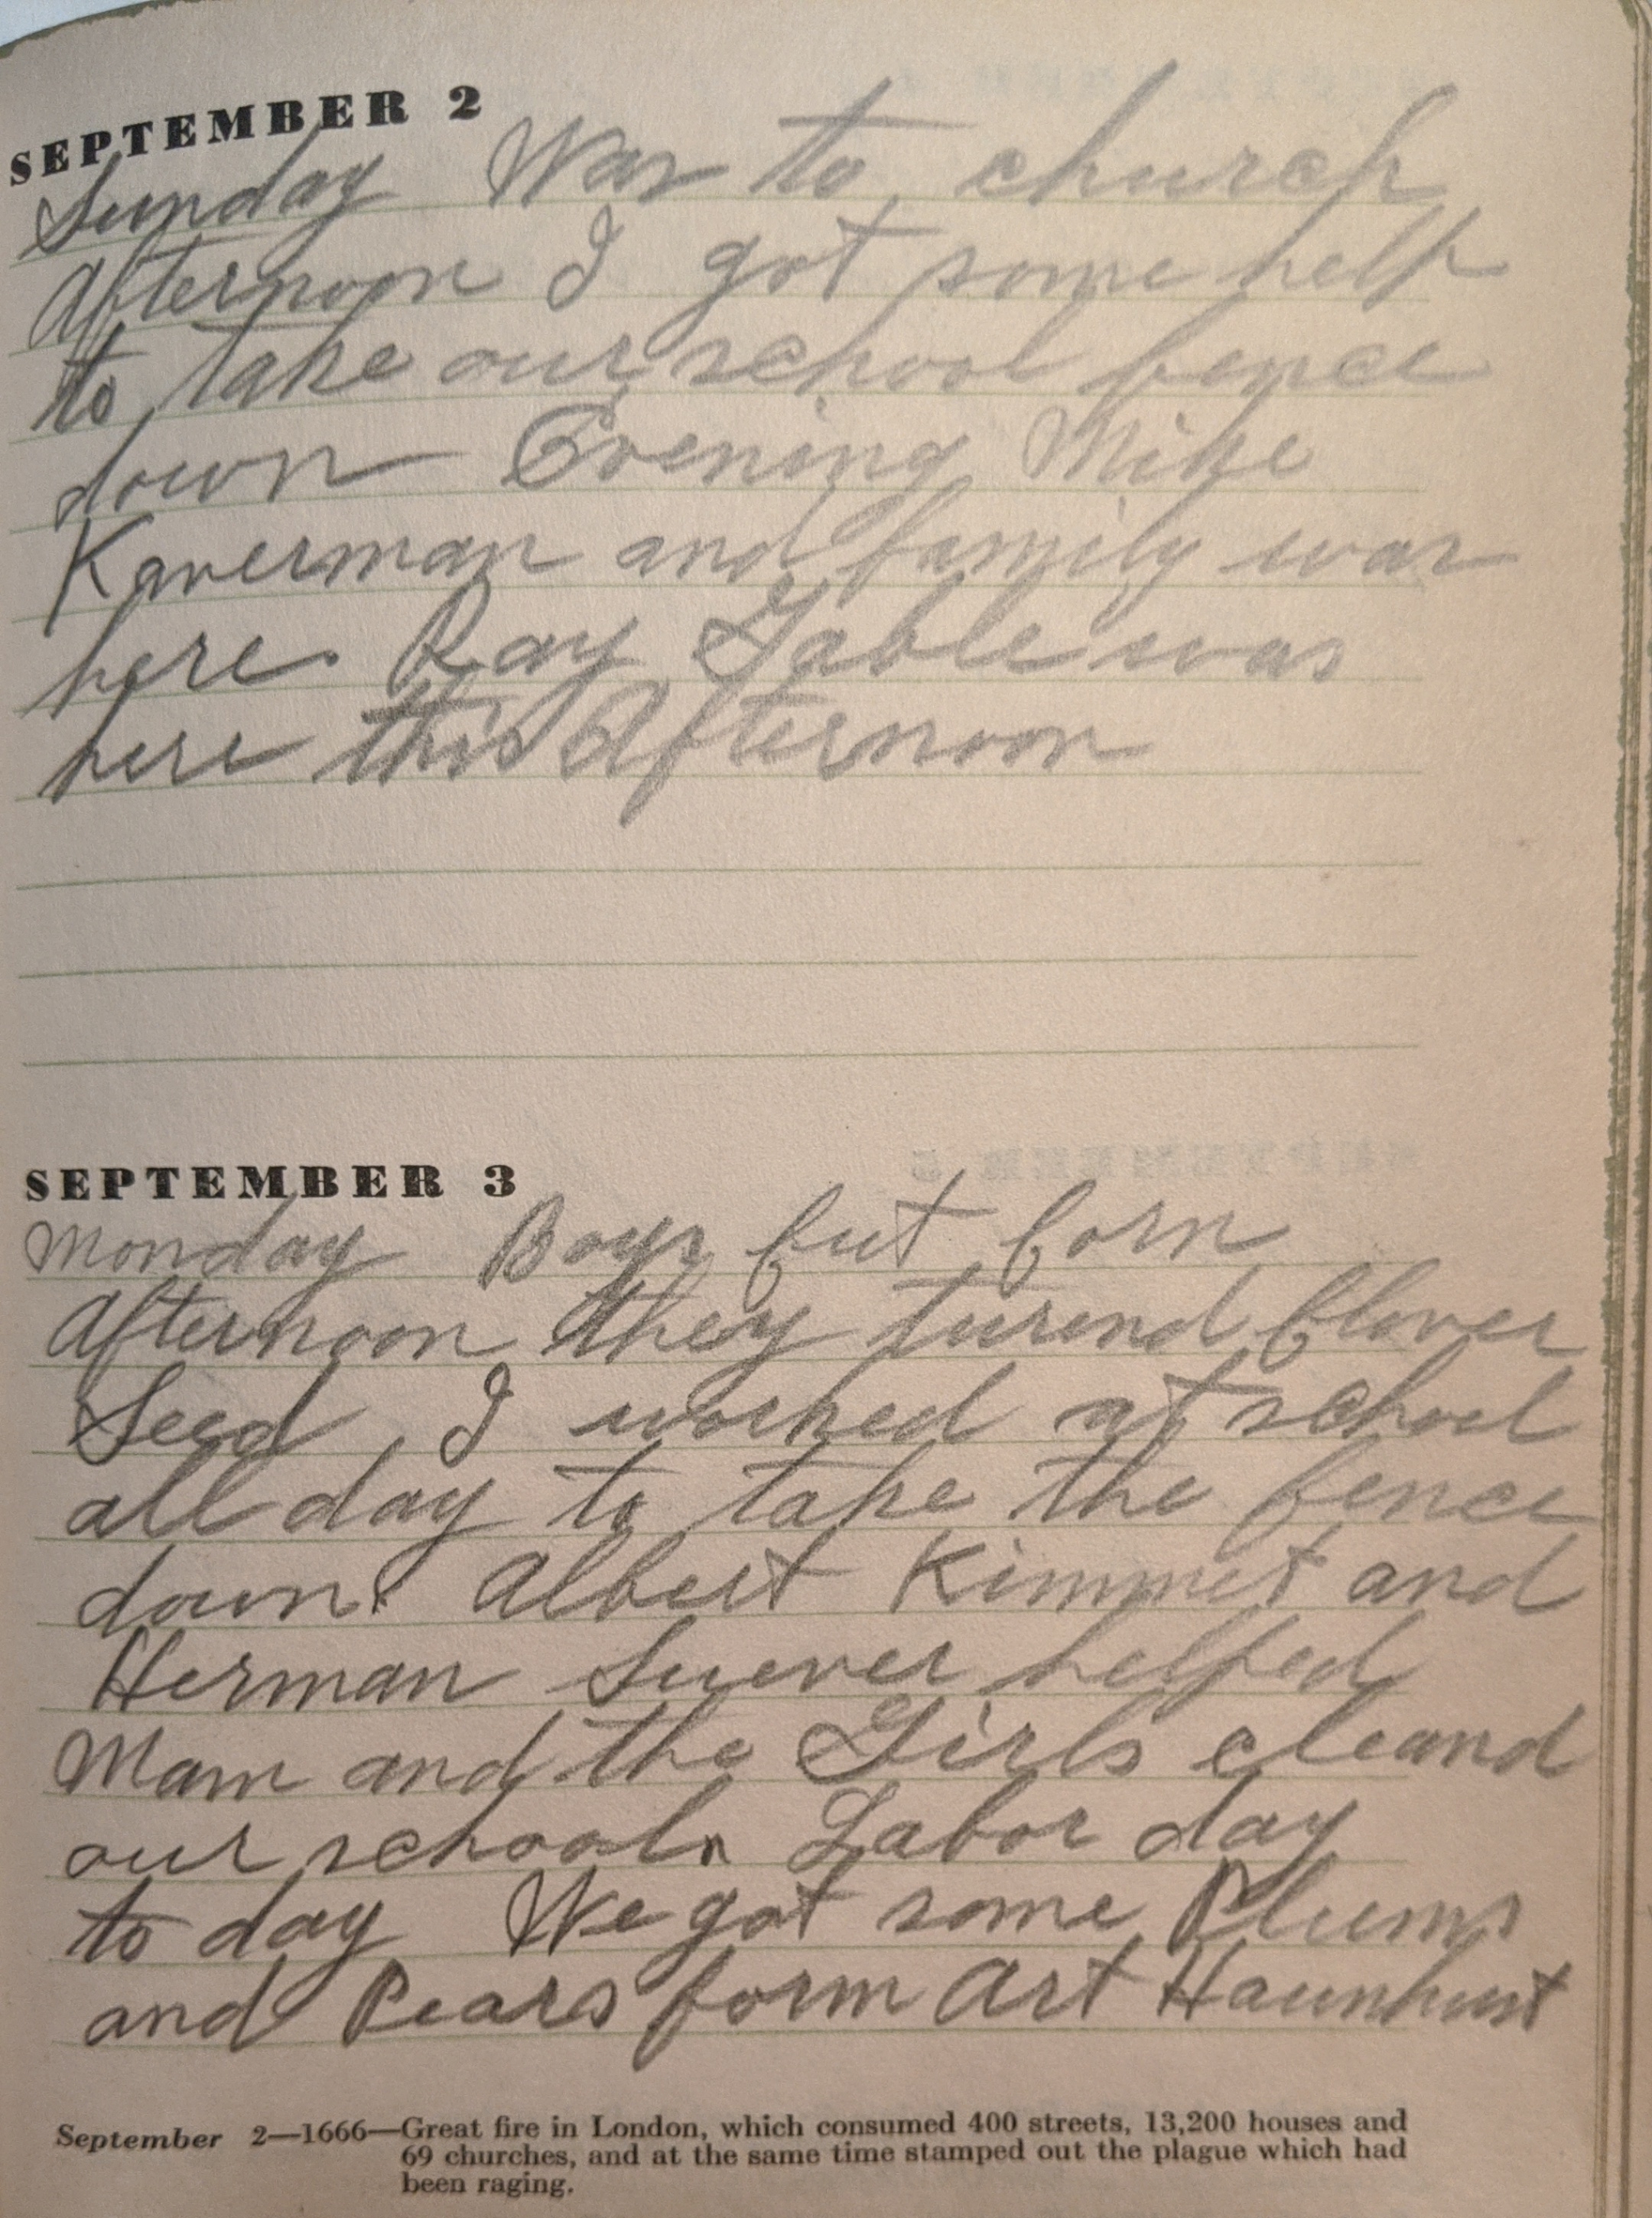 SEPTEMBER 2
Sunday Was to church
Afternoon I got some help
to take our school fence
down Evening Mike
Kaverman and family was
here. Ray Gable was
here this Afternoon
SEPTEMBER 3
Monday Boys cut corn
Afternoon they turend Clover
Seed I worked at school
all day to take the fence
down. Albert Kimmet and
Herman Suever helped
Mam and the Girls cleand
our school. Labor day
to day We got some Plums
and Pears form Art Haunhurst
September 2—1666—Great fire in London, which consumed 400 streets, 13,200 houses and
69 churches, and at the same time stamped out the plague which had
been raging.